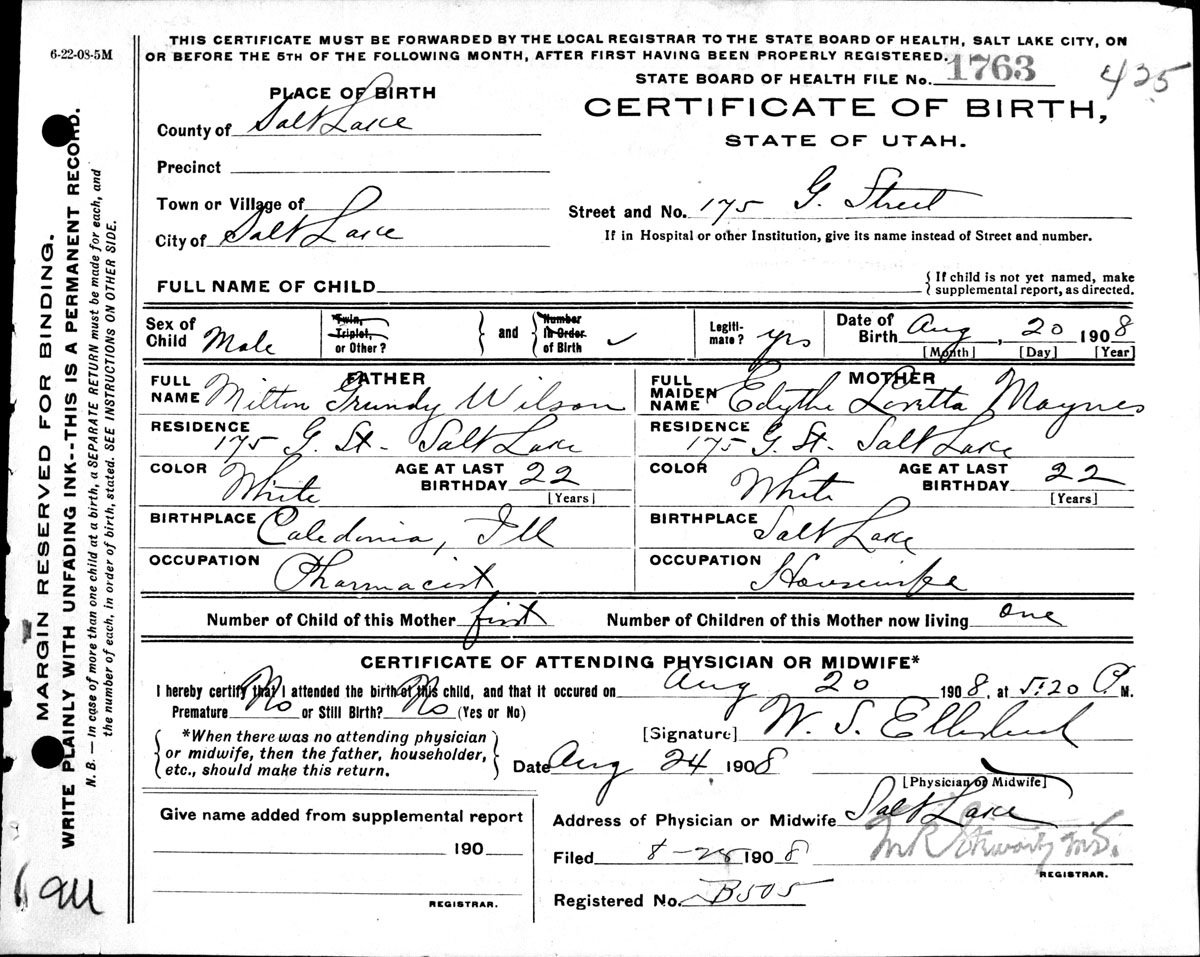 6-22-08-5M
THIS CERTIFICATE MUST BE FORWARDED BY THE LOCAL REGISTRAR TO THE STATE BOARD OF HEALTH, SALT LAKE CITY, ON
OR BEFORE THE 5TH OF THE FOLLOWING MONTH, AFTER FIRST HAVING BEEN PROPERLY REGISTERED.
STATE BOARD OF HEALTH FILE No. 1763
425
PLACE OF BIRTH
CERTIFICATE OF BIRTH,
STATE OF UTAH.
County of Salt Lake
Precinct
Town or Village of
City of Salt Lake
Street and No. 175 G. Street
If in Hospital or other Institution, give its name instead of Street and number.
FULL NAME OF CHILD
{ If child is not yet named, make
{ supplemental report, as directed.
Sex of Child Male
Twin, Triplet, or Other?
} and { Number in Order of Birth ✓
Legiti-mate? yes
Date of Birth Aug, 20 1908
[Month] [Day] [Year]
FATHER
FULL NAME Milton Grundy Wilson
MOTHER
FULL MAIDEN NAME Edythe Loretta Maynes
RESIDENCE 175 G. St. Salt Lake
RESIDENCE 175 G. St. Salt Lake
COLOR White AGE AT LAST BIRTHDAY 22 [Years]
COLOR White AGE AT LAST BIRTHDAY 22 [Years]
BIRTHPLACE Caledonia, Ill
BIRTHPLACE Salt Lake
OCCUPATION Pharmacist
OCCUPATION Housewife
Number of Child of this Mother first Number of Children of this Mother now living one
CERTIFICATE OF ATTENDING PHYSICIAN OR MIDWIFE*
I hereby certify that I attended the birth of this child, and that it occured on Aug 20 1908, at 5:20 P.M.
Premature No or Still Birth? No (Yes or No)
[Signature] W. S. 
*When there was no attending physician
or midwife, then the father, householder,
etc., should make this return.
Date Aug 24 1908
[Physician or Midwife]
Give name added from supplemental report
190
REGISTRAR.
Address of Physician or Midwife Salt Lake
Filed 8-28 1908
M.D.
REGISTRAR.
Registered No. B505
MARGIN RESERVED FOR BINDING.
WRITE PLAINLY WITH UNFADING INK--THIS IS A PERMANENT RECORD.
N. B. — In case of more than one child at a birth, a SEPARATE RETURN must be made for each, and
the number of each, in order of birth, stated. SEE INSTRUCTIONS ON OTHER SIDE.